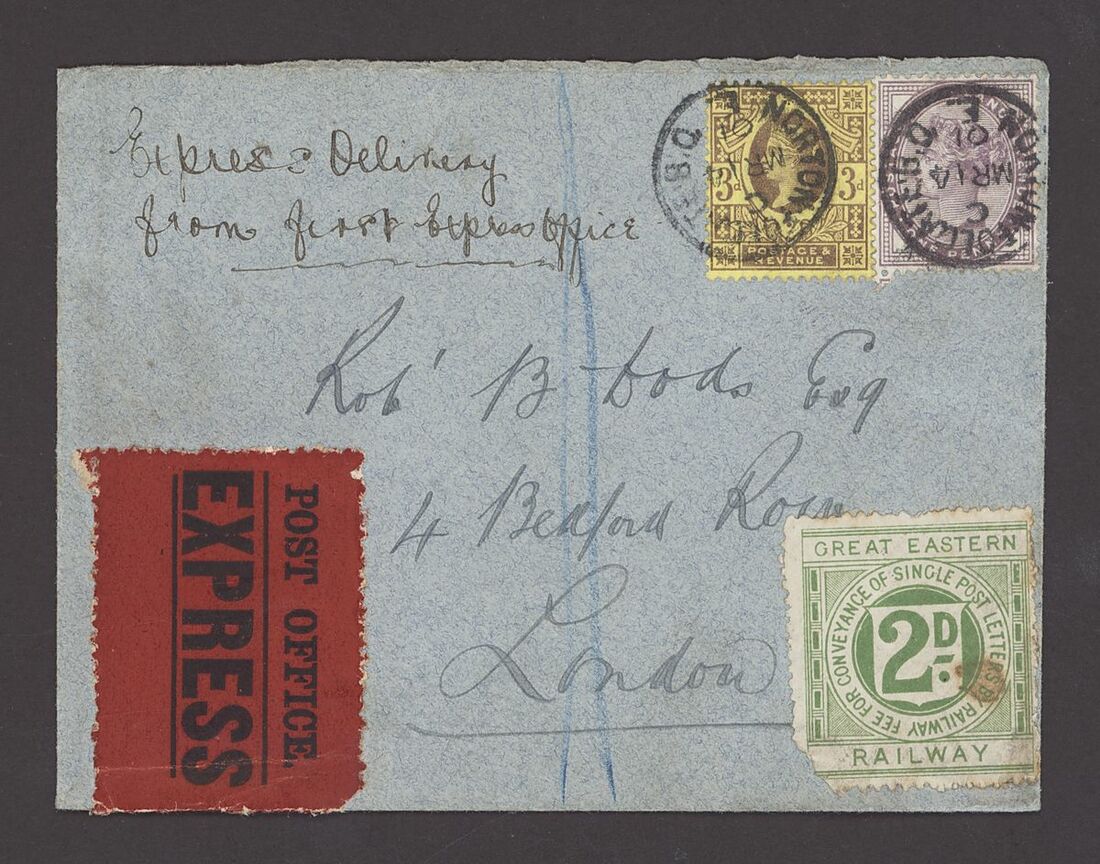 Express Delivery
from first Express Office
3d 3d
POSTAGE &
REVENUE
NORTON
MR 14
01
C
MR 14
01
Robt B Dods Esq
4 Bedford Row
London
POST OFFICE.
EXPRESS
GREAT EASTERN
FEE FOR CONVEYANCE OF SINGLE POST LETTERS BY RAILWAY
2D.
RAILWAY